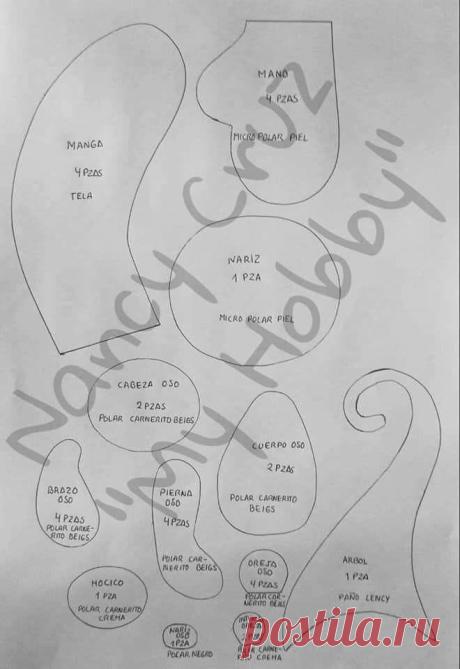 MANO
4 PZAS
MICRO POLAR PIEL
MANGA
4 PZAS
TELA
NARIZ
1 PZA
MICRO POLAR PIEL
Nancy Cruz
"My Hobby"
CABEZA OSO
2 PZAS
POLAR CARNERITO BEIGS
CUERPO OSO
2 PZAS
POLAR CARNERITO
BEIGS
BRAZO
OSO
4 PZAS
POLAR CARNE-
RITO BEIGS
PIERNA
OSO
4 PZAS
POLAR CAR-
NERITO BEIGS
OREJA
OSO
4 PZAS
POLAR CAR-
NERITO BEIGS
ARBOL
1 PZA
PAÑO LENCY
HOCICO
1 PZA
POLAR CARNERITO
CREMA
NARIZ
OSO
1 PZA
POLAR NEGRO
CREMA
postila.ru